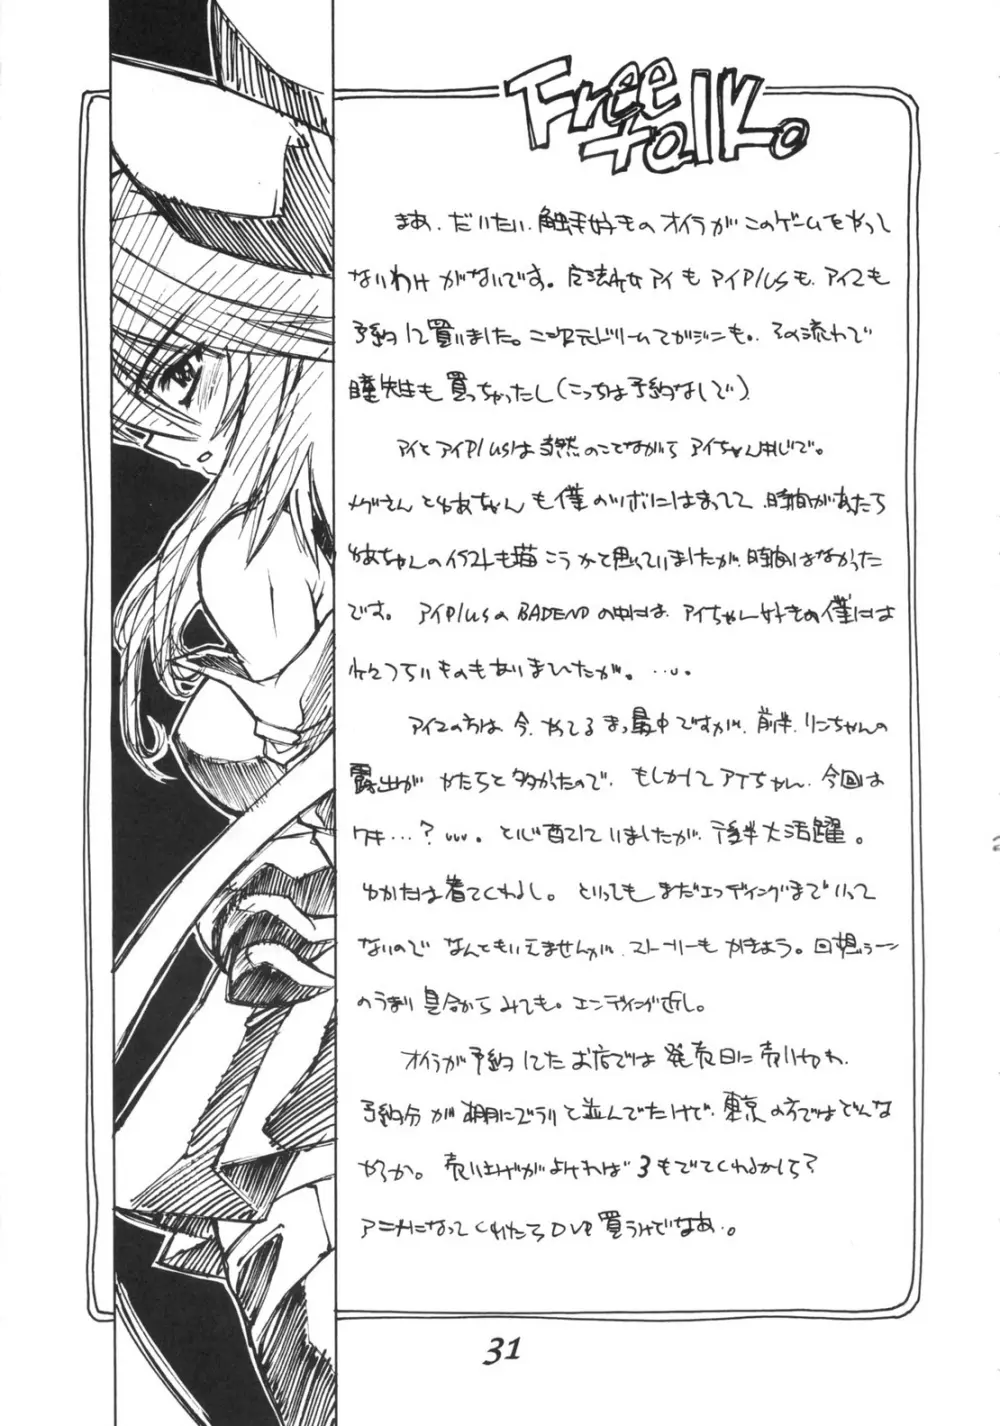 Free
talk。
まあ、だいたい、触手好きのオイラがこのゲームをやって
ないわけがないです。魔法少女アイもアイPlusも、アイ2も
予約して買いました。二次元ドリームマガジンも。その流れで
瞳先生も買っちゃったし(こっちは予約なしで)
アイとアイPlusは当然のことながらアイちゃん中心で。
メグさんとゆあちゃんも僕のツボにはまってて、時間があたら
ゆあちゃんのイラストも描こうかて思っていましたが、時間はなかった
です。アイPlusのBADENDの中には、アイちゃん好きの僕には
つらいものもありましたが。…。
アイ2の方は、今、やてるまっ最中ですが、前半、りんちゃんの
露出がかたちと多かったので、もしかしてアイちゃん、今回は
ワキ…?…。と心配していましたが、後半大活躍。
ゆかたは着てくれるし。といってもまだエンディングまでいって
ないのでなんともいえませんが、ストーリーもがきよう。回想シーン
のうまり具合からみても。エンディング近し。
オイラが予約してたお店では発売日に売り切れ、
予約分が棚にズラリと並んでたけど、東京の方ではどんな
かろか。売り上げがよければ3もでてくれるかして?
アニメになってくれたらDVD買うんでなあ。
31